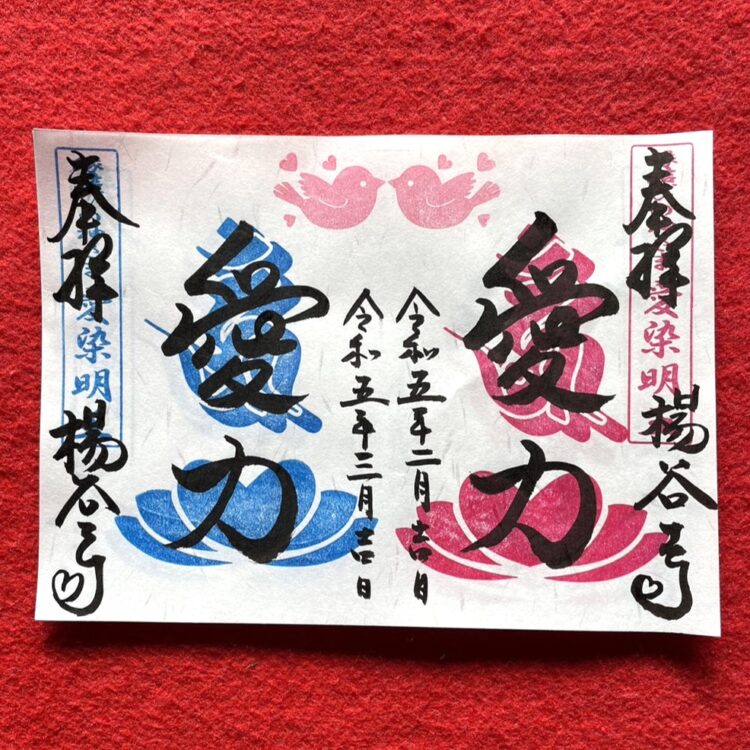 奉拝
愛染明
楊谷寺
愛力
令和五年二月吉日
令和五年三月吉日
愛力
奉拝
愛染明
楊谷寺